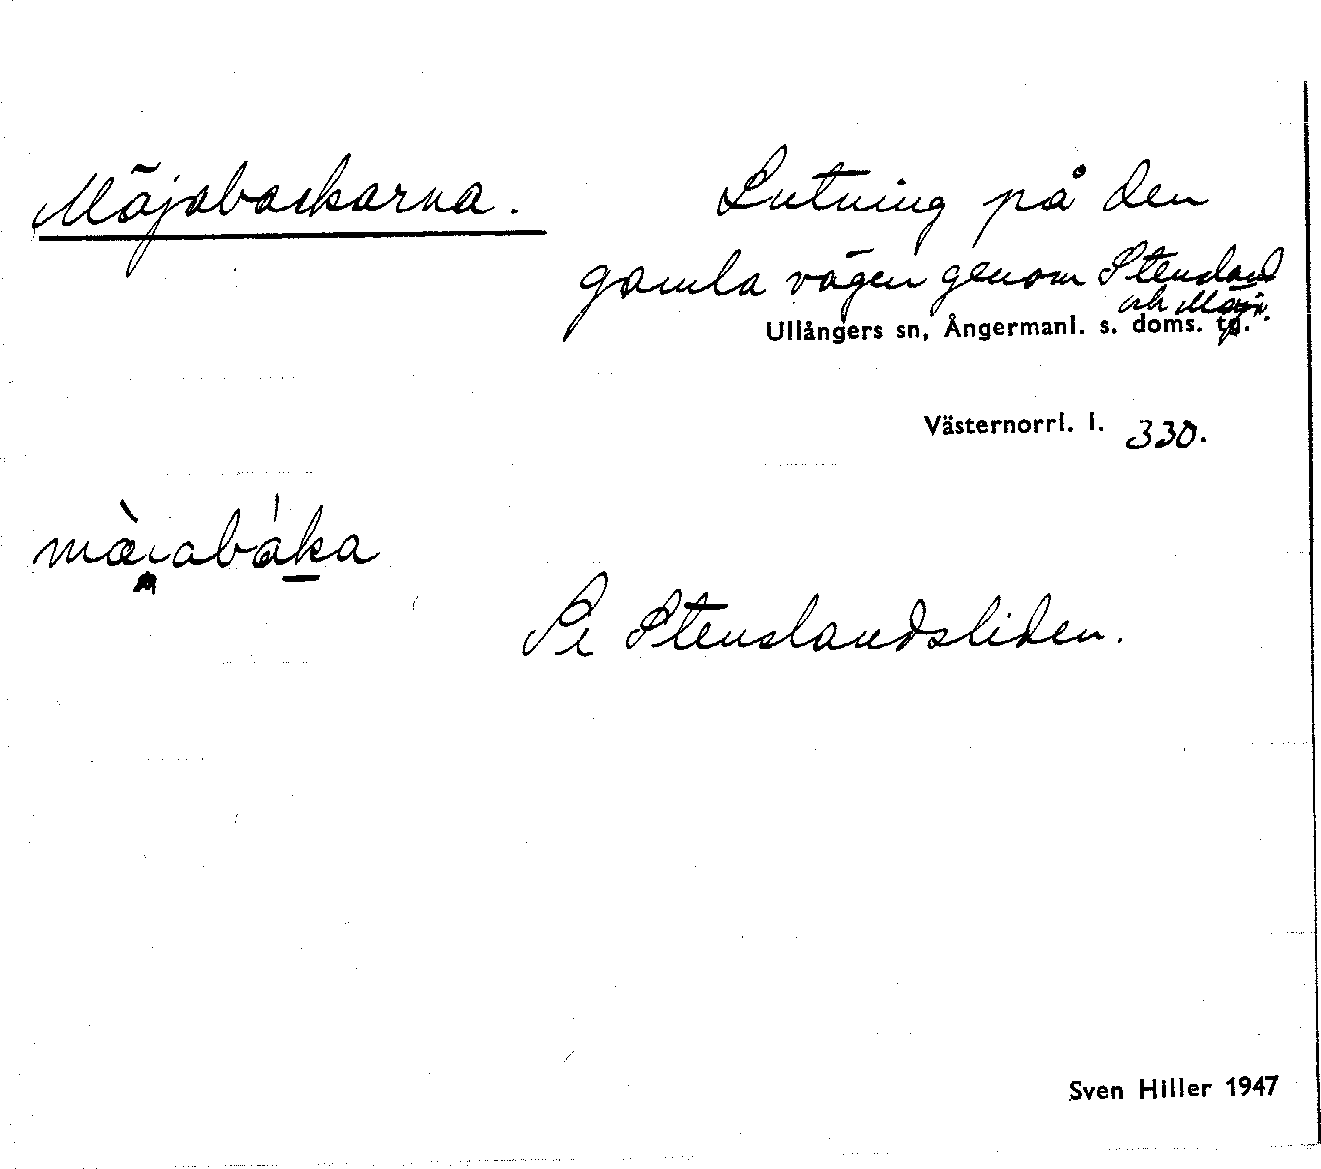 Mäjabackarna.
Lutning på den
gamla vägen genom Stensland
och Mäja.
Ullångers sn, Ångermanl. s. doms. tg.
Västernorrl. l. 330.
mæ̀ɩabáka
Se Stenslandsliden.
Sven Hiller 1947